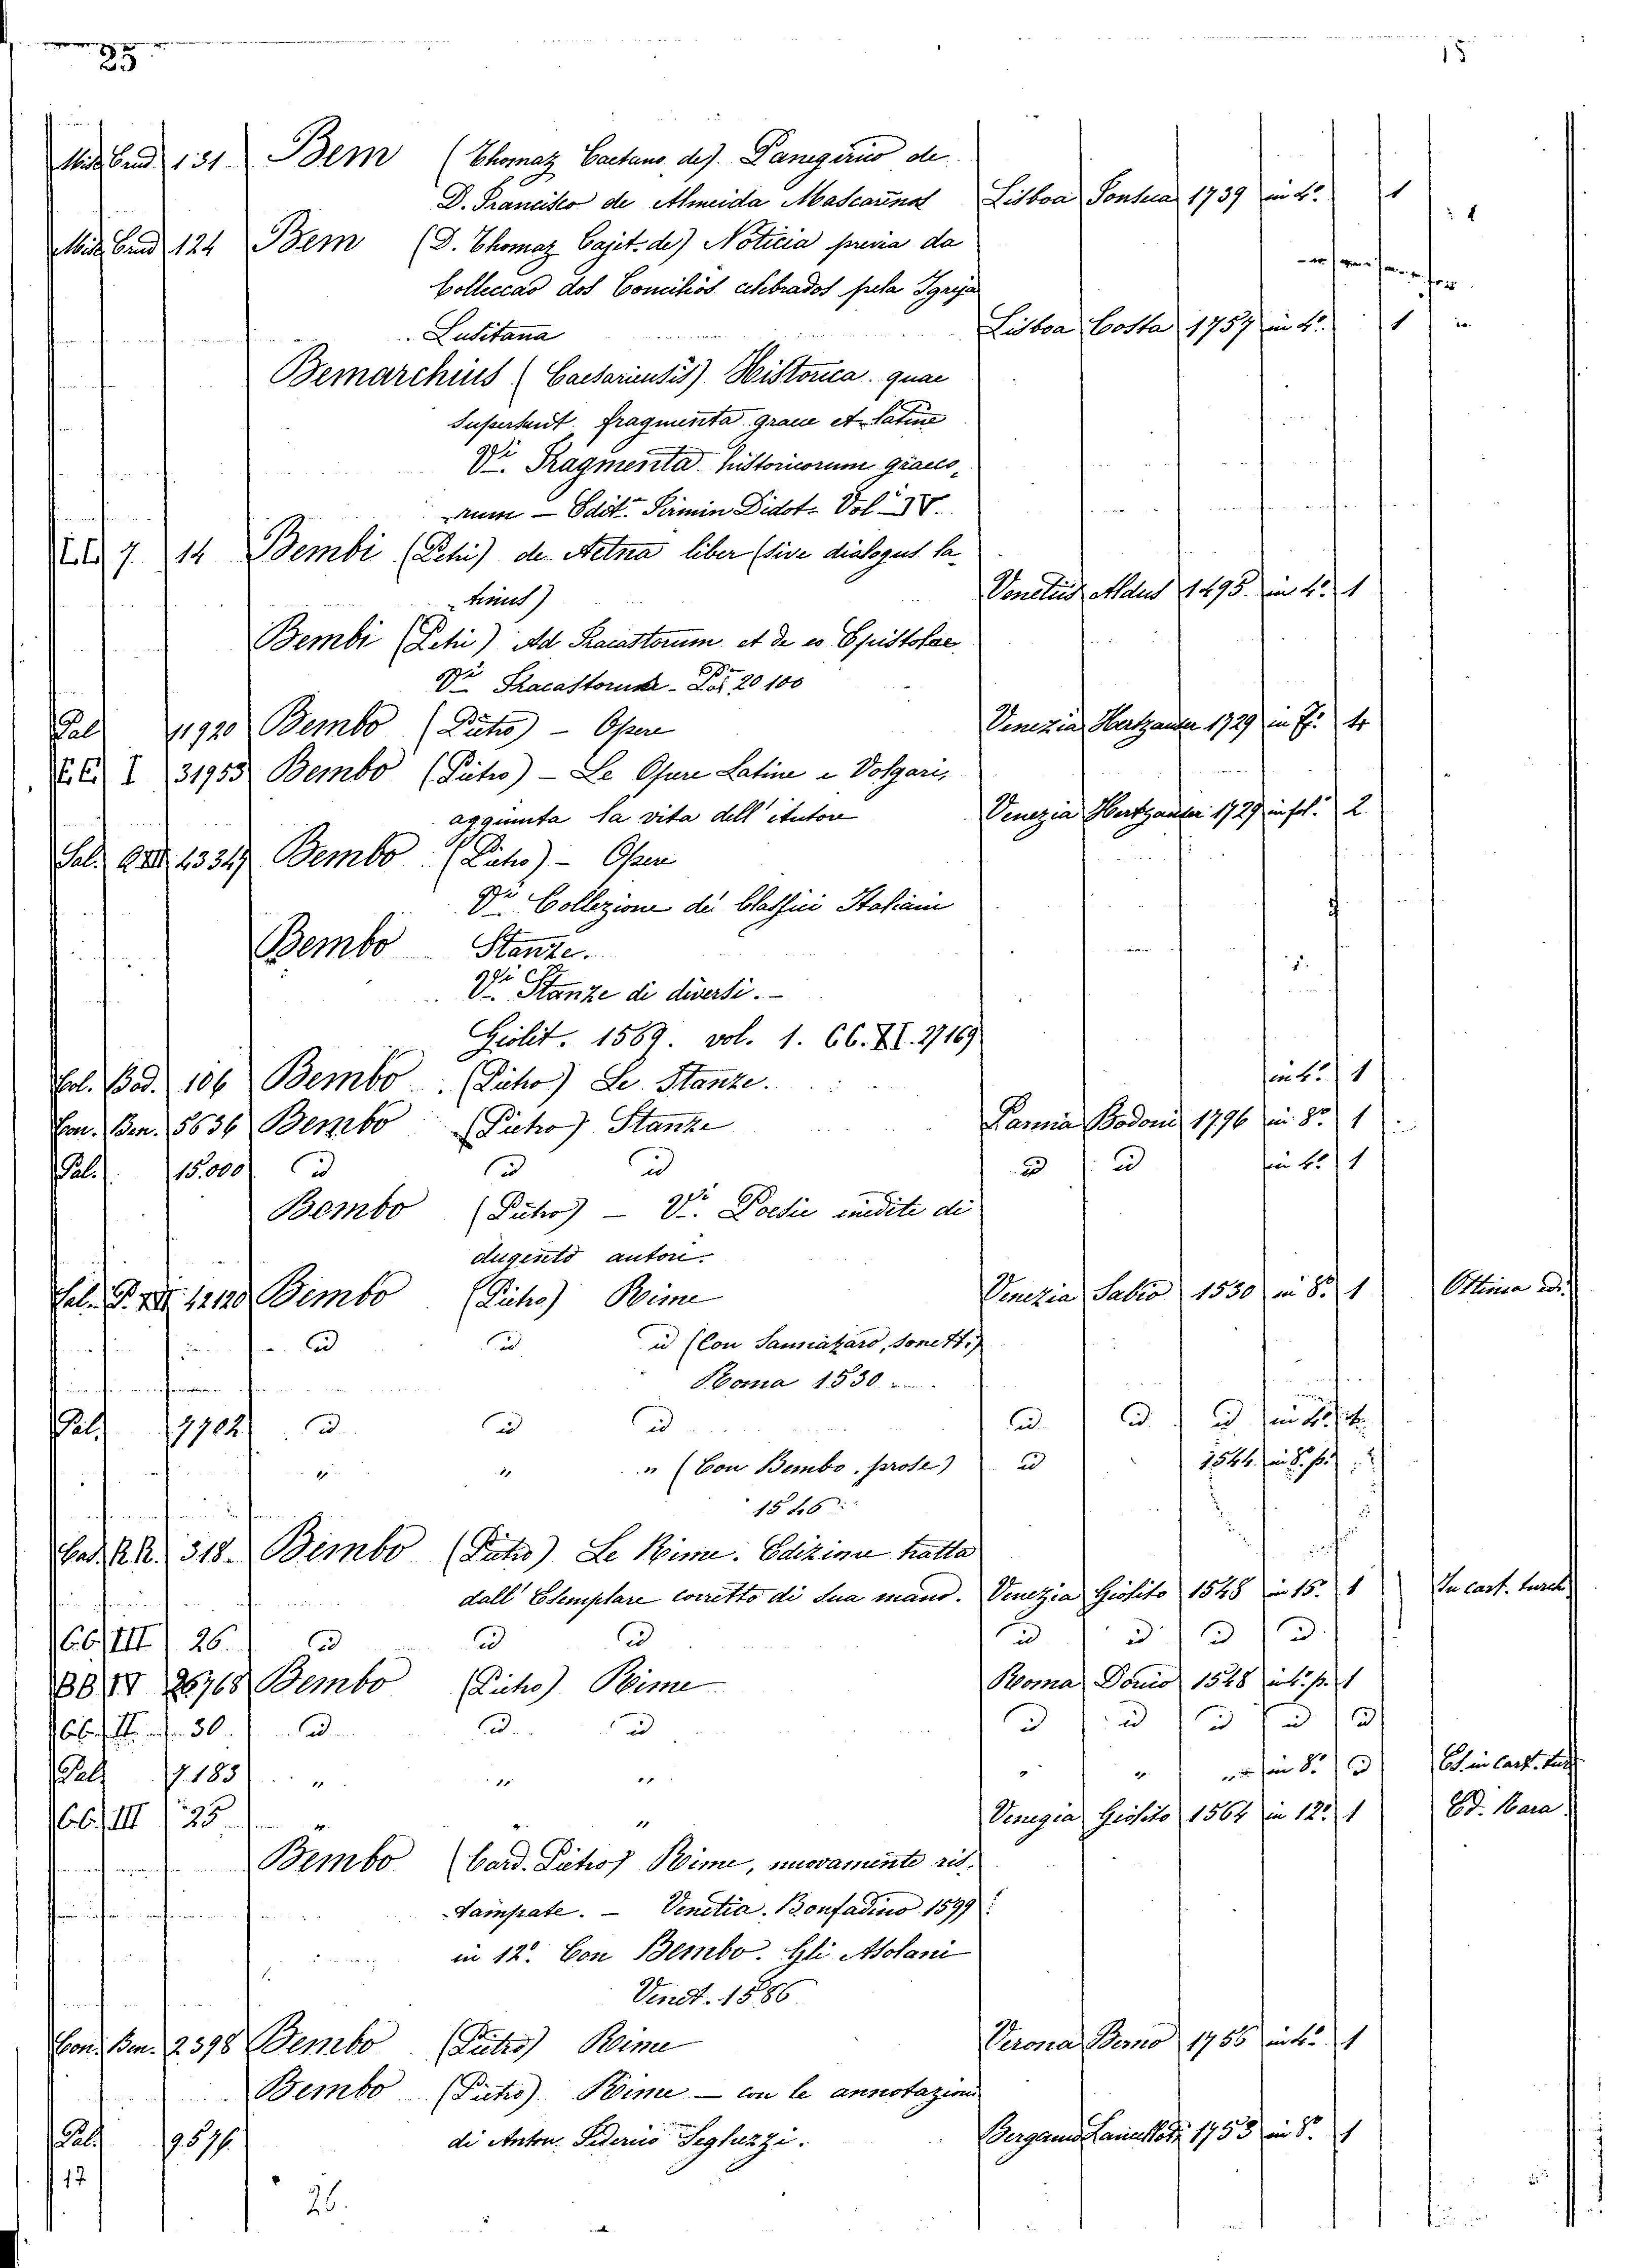 25 15
131 Bem (Thomaz Caetano de) Panegirico de
D. Francisco de Almeida Mascarinas Lisboa 1739 in 4º 1
124 Bem (D. Thomaz Cajet. de) Noticia previa da
Colleccao dos Concilios celebrados pela Igreja
Lusitana Lisboa Costa 1757 in 4º 1
Bemarchius (Caesariensis) Historica quae
supersunt fragmenta graece et latine
Vi. Fragmenta historicorum graeco-
rum — Edit. Firmin Didot. Vol. IV.
7. 14 Bembi (Petri) de Aetna liber (sive dialogus la-
tinus) Venetiis Aldus 1495 in 4º 1
Bembi (Petri) Ad Fracastorum et de eo Epistolae
Vi. Fracastorum - 20100
Pal. 11920 Bembo (Pietro) - Opere Venezia Hertzauser 1729 in f. 4
I 31953 Bembo (Pietro) - Le Opere Latine e Volgari,
aggiunta la vita dell'Autore Venezia Hertzauser 1729 in fol. 2
Bembo (Pietro) - Opere
Vi. Collezione dei Classici Italiani
Bembo Stanze.
Vi. Stanze di diversi. -
Giolit. 1569. vol. 1. CC. XI. 27169
Bod. 106 Bembo (Pietro) Le Stanze. in 4º 1
5636 Bembo (Pietro) Stanze Parma Bodoni 1796 in 8º 1
Pal. 15.000 id id id id id in 4º 1
Bembo (Pietro) - Vi. Poesie inedite di
dugento autori.
12120 Bembo (Pietro) Rime Venezia Sabio 1530 in 8º 1 Ottima ediz.
id id id (Con Sannazaro, sonetti)
Roma 1530
Pal. 7702 id id id id id id
" " " (Con Bembo. prose) id 1544 in 8º
1546
R.R. 318. Bembo (Pietro) Le Rime. Edizione tratta
dall'Esemplare corretto di sua mano. Venezia Giolito 1548 in 15º 1 In cart. turch.
CC. III 26. id id id id id id id
BB IV 26768 Bembo (Pietro) Rime Roma Dorico 1548 1
30. id id id id id id id id
Pal. 7.183 " " " " " " in 8º id Es. in cart. tur.
CC. III 25 " " " Venezia Giolito 1564 in 12º 1 Ed. Rara
Bembo (Card. Pietro) Rime, nuovamente ris-
tampate. - Venetia. Bonfadino 1599
in 12º. Con Bembo. Gli Asolani
Venet. 1586
Bembo (Pietro) Rime Verona Berno 1 
Bembo (Pietro) Rime — con le annotazioni
Pal. 9.576. di Anton. Federico Seghezzi. Bergamo Lancellotti 1753 in 8º 1
17
26.